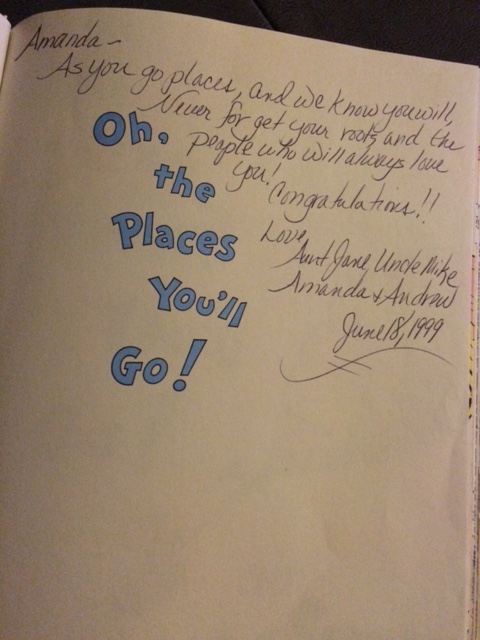 Amanda –
As you go places, and we know you will,
Never forget your roots and the
people who will always love
you!
Congratulations!!
Love,
Aunt Jane, Uncle Mike
Amanda & Andrew
June 18, 1999
Oh,
the
Places
You'll
Go!